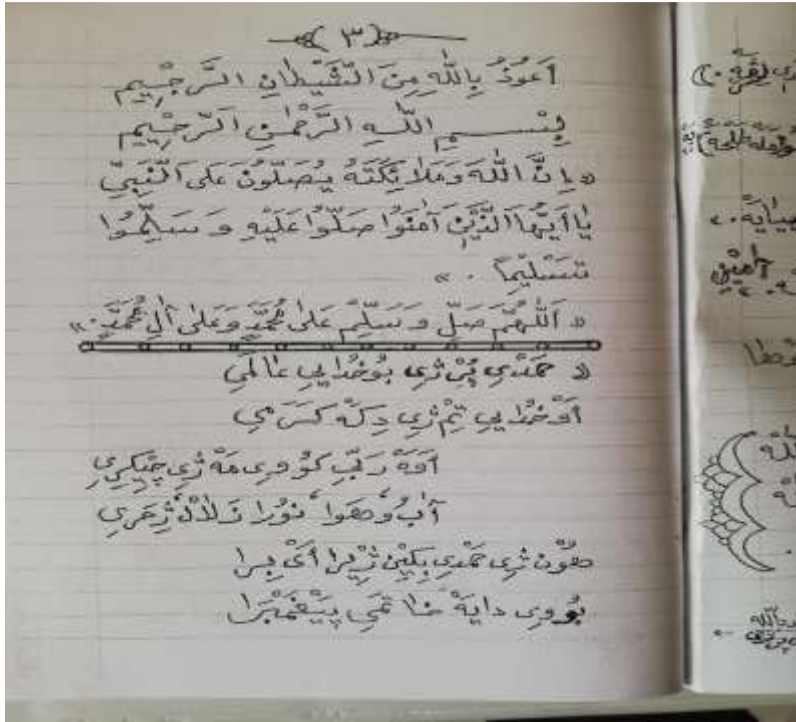 ٣
أَعُوذُ بِاللّٰهِ مِنَ الشَّيْطَانِ الرَّجِيْمِ
بِسْمِ اللّٰهِ الرَّحْمٰنِ الرَّحِيْمِ
«إِنَّ اللّٰهَ وَمَلَائِكَتَهُ يُصَلُّونَ عَلَى النَّبِيِّ
يَا أَيُّهَا الَّذِيْنَ آمَنُوا صَلُّوا عَلَيْهِ وَسَلِّمُوا
تَسْلِيْمًا.»
«اَللّٰهُمَّ صَلِّ وَسَلِّمْ عَلٰى مُحَمَّدٍ وَعَلٰى آلِ مُحَمَّدٍ.»
« حَمْدِي پُرْ ژِي بُوخُدَايِي عَالَمِي
أَوْ خُدَايِي تِمْ ژِي دِكَهْ كَرَمِي
أَوَهْ رَبِّ كُو وِي مَهْ ژِي چِيْكِرِي
آبْ وهَوا، نُورَا زَلَالْ
هُوْنْ ژِي حَمْدِي بِكِيْنْ ژِيْرا أَيْ بِرا
بُووِي دايَهْ مَا پِيْغَمْبَرَا
آمِيْنْ